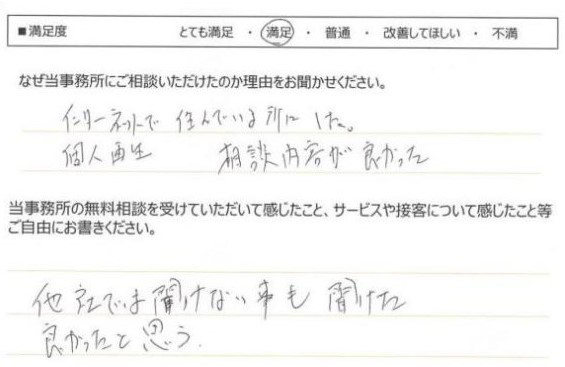 ■満足度 とても満足 ・ 満足 ・ 普通 ・ 改善してほしい ・ 不満
なぜ当事務所にご相談いただけたのか理由をお聞かせください。
インターネットで 住んでいる所に した。
個人再生 相談内容が良かった
当事務所の無料相談を受けていただいて感じたこと、サービスや接客について感じたこと等
ご自由にお書きください。
他社では聞けない事も 聞けた
良かったと思う.